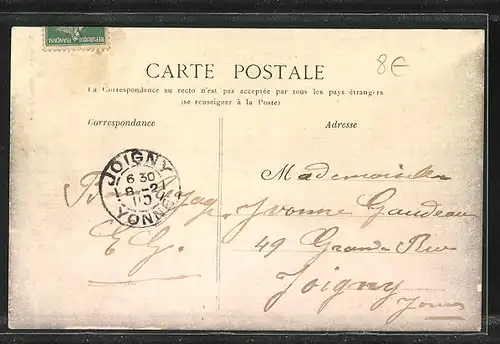 REPUBLIQUE FRANÇAISE
8€
CARTE POSTALE
La Correspondance au recto n'est pas acceptée par tous les pays étrangers
(se renseigner à la Poste)
Correspondance
Adresse
JOIGNY
6 30
8 -2
YONNE
Mademoiselle
Yvonne Gaudeau
49 Grande Rue
Joigny
Yonne
E G.